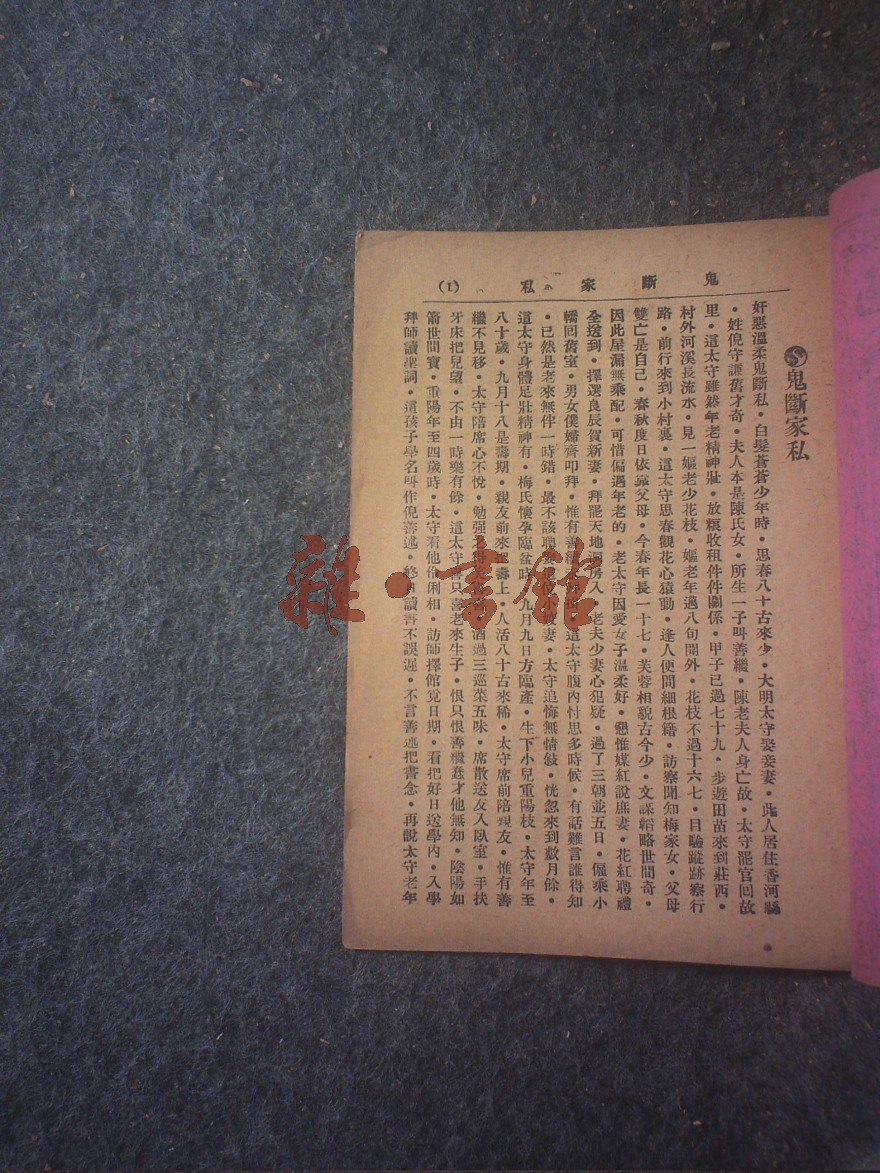 鬼斷家私 (1)
鬼斷家私
奸惡溫柔鬼斷私•白髮蒼蒼少年時•思春八十古來少•大明太守娶妾妻•此人居住香河縣
•姓倪守謙舊才奇•夫人本是陳氏女•所生一子叫善繼•陳老夫人身亡故•太守罷官回故
里•這太守雖然年老精神壯•放糧收租件件關係•甲子已過七十九•步遊田苗來到莊西•
村外河溪長流水•見一嫗老少花枝•嫗老年邁八旬開外•花枝不過十六七•目驗蹤跡察行
路•前行來到小村裏•這太守思春觀花心猿動•逢人便問細根籍•訪察聞知梅家女•父母
雙亡是自己•春秋度日依靠父母•今春年長一十七•芙蓉相貌古今少•文謀韜略世間奇•
因此屋漏無乘配•可惜偏遇年老的•老太守因愛女子溫柔好•懇惟媒紅說庶妻•花紅聘禮
全送到•擇選良辰賀新妻•拜罷天地洞房入•老夫少妻心犯疑•過了三朝並五日•僱乘小
轎回舊室•男女僕婦齊叩拜•惟有善繼•這太守腹內忖思多時候•有話難言誰得知
•已然是老來無伴一時錯•最不該聘妻•太守追悔無情敍•恍忽來到數月餘•
這太守身體足壯精神有•梅氏懷孕臨盆時•九月九日方臨產•生下小兒重陽枝•太守年至
八十歲•九月十八是壽期•親友前來壽上•人活八十古來稀•太守席前陪親友•惟有善
繼不見移•太守陪席心不悅•勉强•酒過三巡菜五味•席散送友入臥室•手扶
牙床把兒望•不由一時樂有餘•這太守喜只喜老來生子•恨只恨善繼蠢才他無知•陰陽如
箭世間寶•重陽年至四歲時•太守看他伶俐相•訪師擇館覓日期•看把好日送學內•入學
拜師讀聖詞•這孩子學名叫作倪善述•終日讀書不誤遲•不言善述把書念•再說太守老年
雜•書館